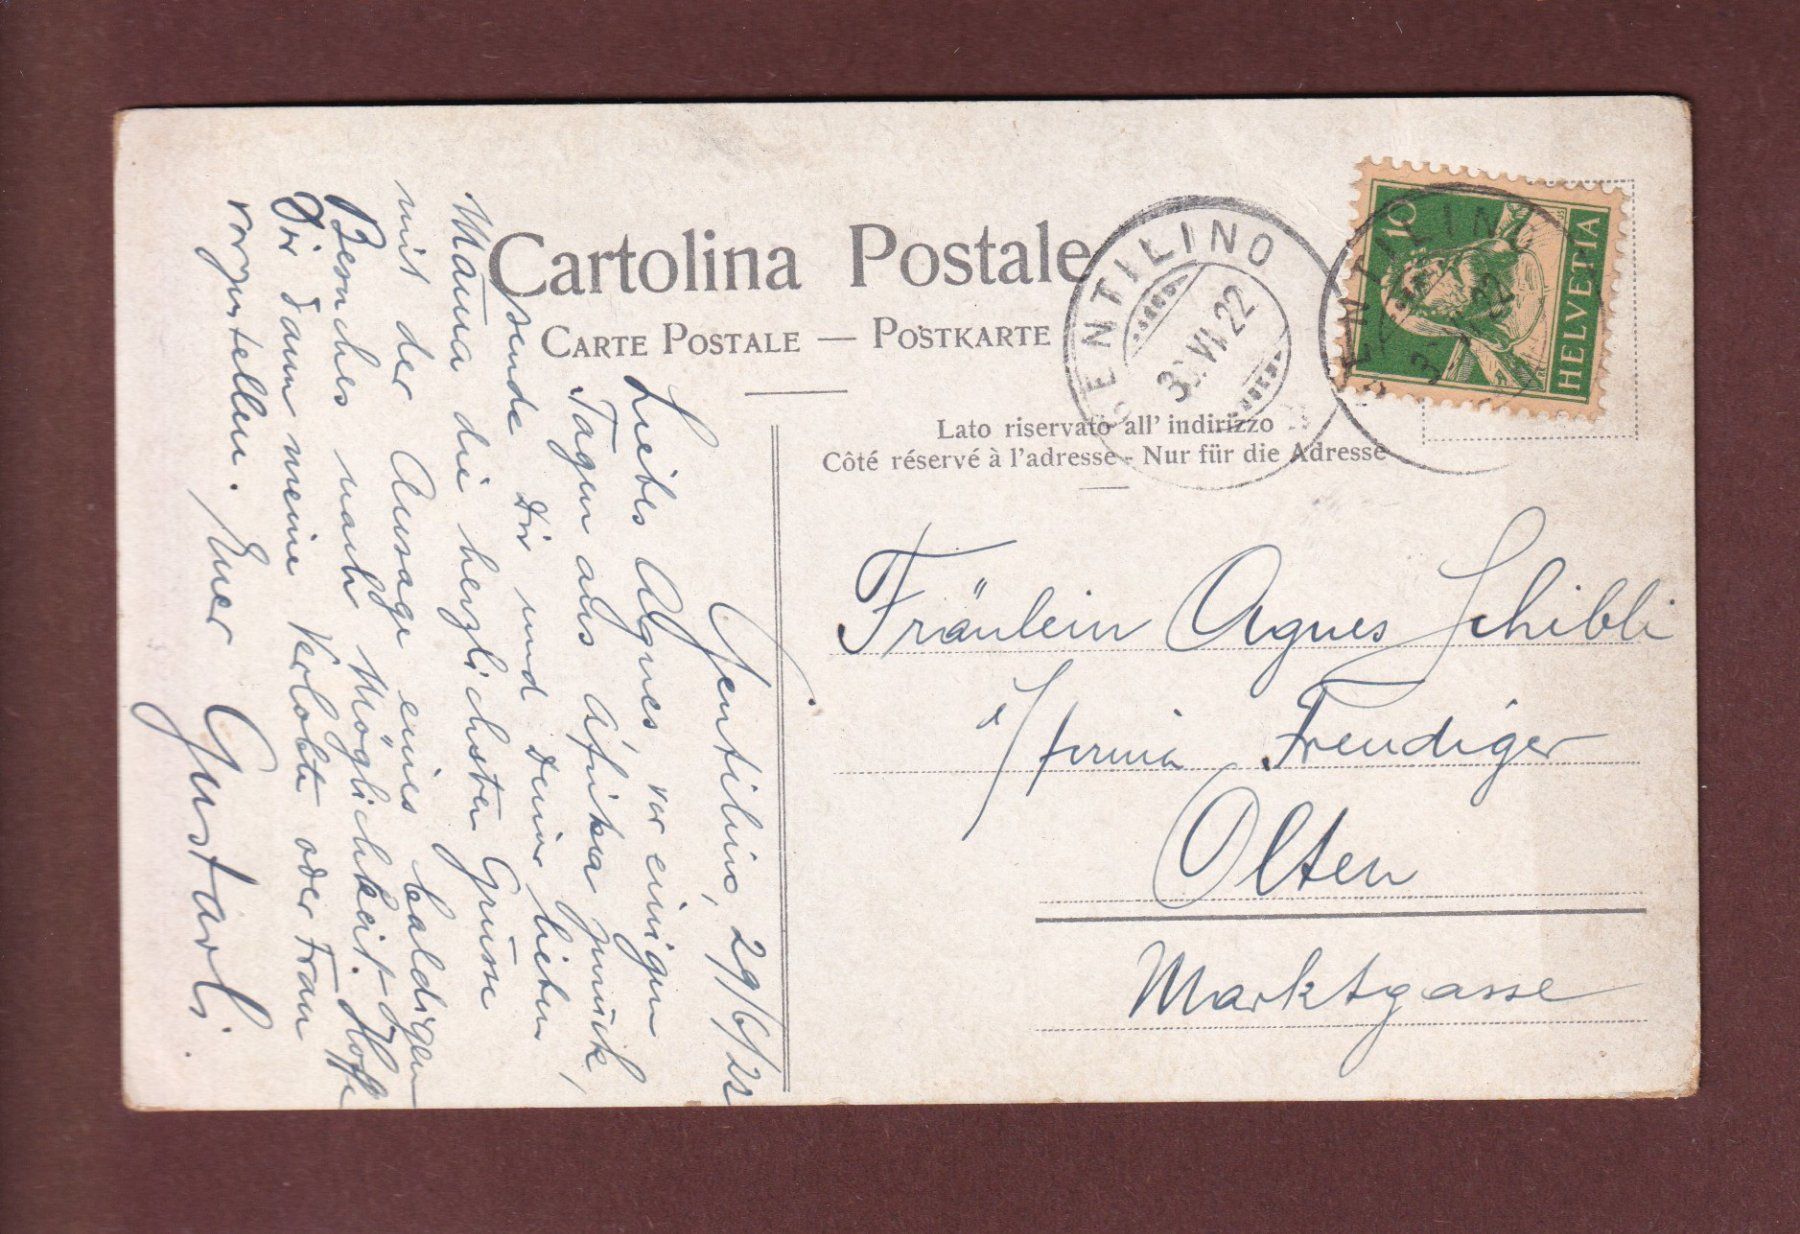 Cartolina Postale
CARTE POSTALE — POSTKARTE
Lato riservato all' indirizzo
Côté réservé à l'adresse - Nur für die Adresse
GENTILINO
30.VI.22
GENTILINO
VI.22
10
HELVETIA
Gentilino, 29/6/22
Liebes Agnes, vor einigen
Tagen aus Afrika zurück,
sende Dir und Deiner lieben
Mama die herzlichsten Grüsse
mit der Aussage eines baldigen
Besuches nach Möglichkeit. Hoffe
Dir dann meine Verlobte oder Frau
vorzustellen. Euer Gustavli.
Fräulein Agnes Schibli
i/ firma Freudiger
Olten
Marktgasse